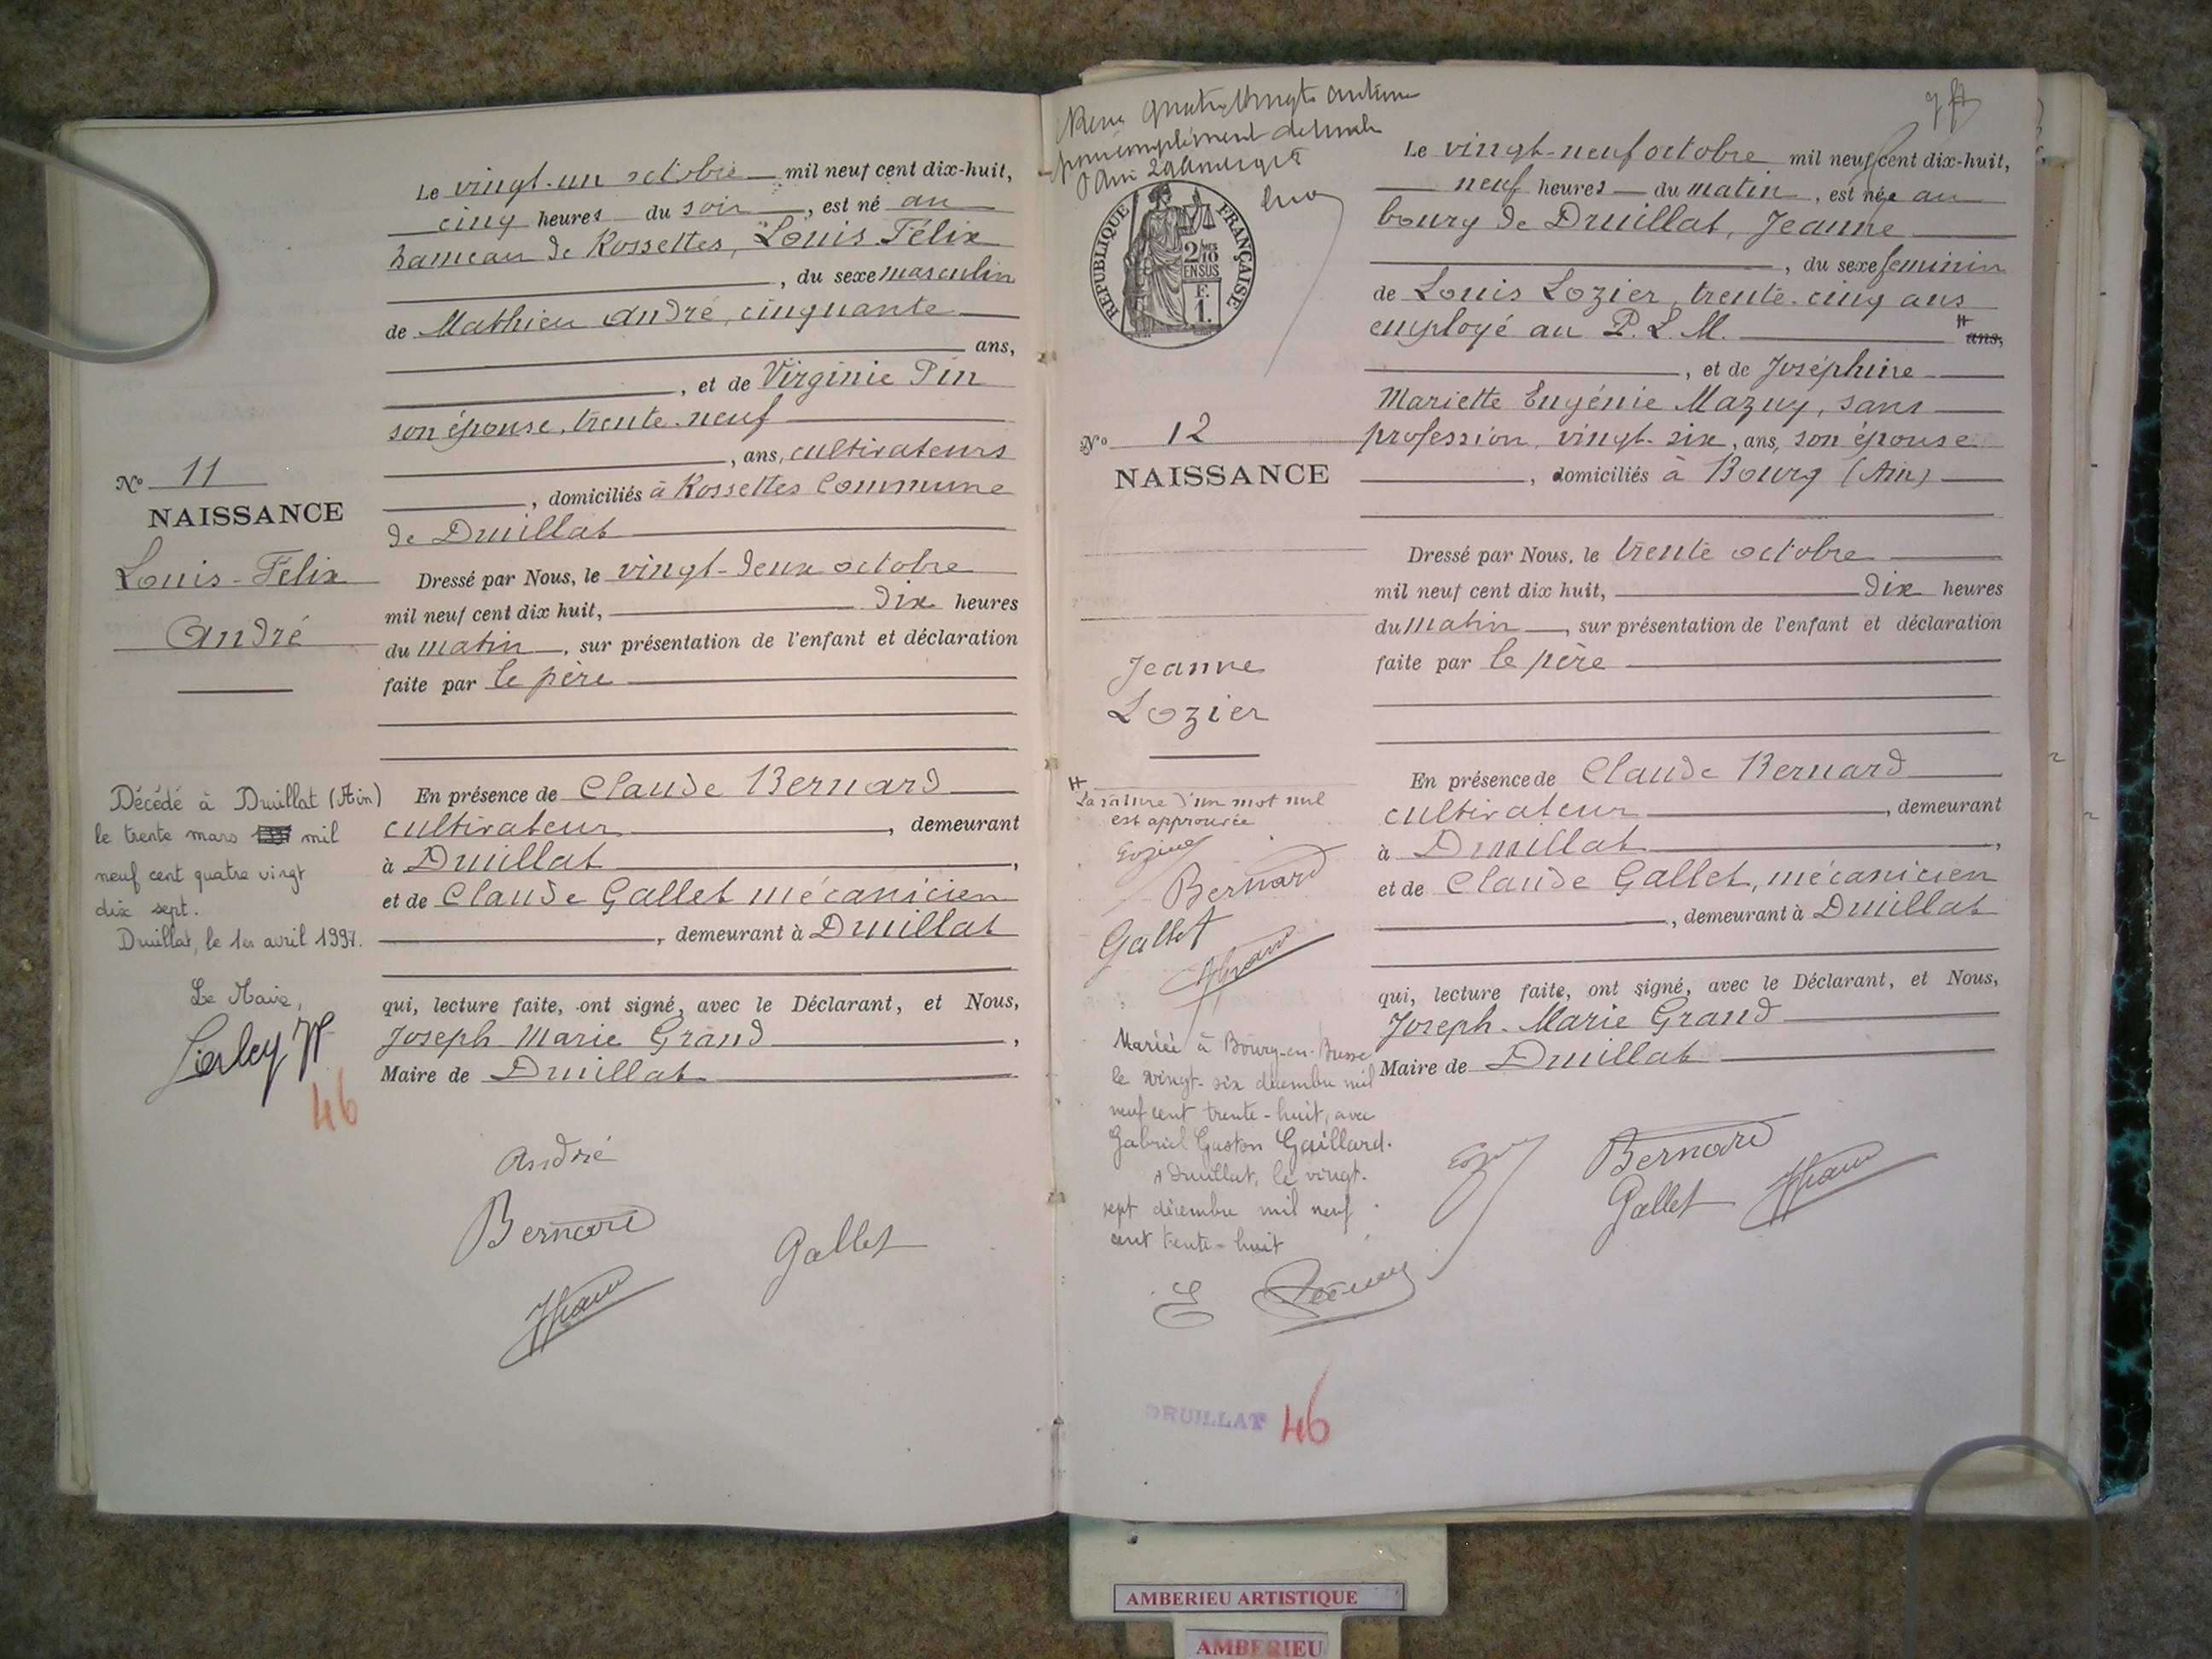 Le vingt-un octobre mil neuf cent dix-huit,
cinq heures du soir, est né au
hameau de Rossettes, Louis Félix
, du sexe masculin
de Mathieu André, cinquante
ans,
, et de Virginie Pin
son épouse, trente-neuf
, ans, cultivateurs
, domiciliés à Rossettes Commune
de Druillat
N° 11
NAISSANCE
Louis-Félix
André
Dressé par Nous, le vingt-deux octobre
mil neuf cent dix huit, dix heures
du matin, sur présentation de l'enfant et déclaration
faite par le père
En présence de Claude Bernard
cultivateur, demeurant
à Druillat,
et de Claude Gallet mécanicien
, demeurant à Druillat
qui, lecture faite, ont signé, avec le Déclarant, et Nous,
Joseph Marie Grand,
Maire de Druillat
Décédé à Druillat (Ain)
le trente mars mil
neuf cent quatre vingt
dix sept.
Druillat, le 1er avril 1997.
Le Maire,
46
André
Bernard
Gallet
JGrand
pour complément de timbre
REPUBLIQUE FRANÇAISE
2/10
EN SUS
F.
1.
Le vingt-neuf octobre mil neuf cent dix-huit,
neuf heures du matin, est née au
bourg de Druillat, Jeanne
, du sexe féminin
de Louis Lozier, trente-cinq ans
employé au P.L.M. # ans,
, et de Joséphine
Mariette Eugénie Mazuy, sans
profession, vingt-six, ans, son épouse
, domiciliés à Bourg (Ain)
N° 12
NAISSANCE
Jeanne
Lozier
Dressé par Nous, le trente octobre
mil neuf cent dix huit, dix heures
du matin, sur présentation de l'enfant et déclaration
faite par le père
En présence de Claude Bernard
cultivateur, demeurant
à Druillat,
et de Claude Gallet, mécanicien
, demeurant à Druillat
qui, lecture faite, ont signé, avec le Déclarant, et Nous,
Joseph-Marie Grand
Maire de Druillat
# La rature d'un mot nul
est approuvée
Bernard
Gallet
JGrand
Mariée à Bourg-en-Bresse
le vingt-six décembre mil
neuf cent trente-huit, avec
Gabriel Gaston Gaillard.
A Druillat, le vingt-
sept décembre mil neuf
cent trente-huit
Bernard
Gallet
JGrand
DRUILLAT 46
AMBERIEU ARTISTIQUE
AMBERIEU